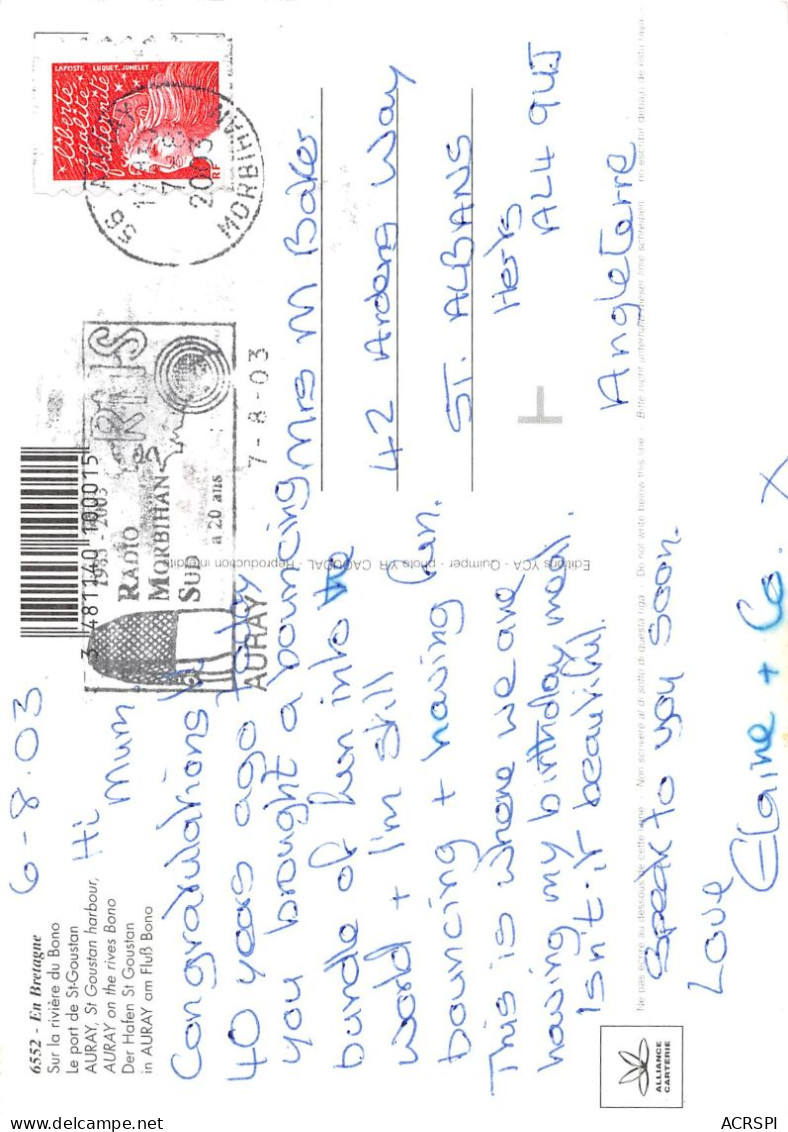 6552 - En Bretagne
Sur la rivière du Bono
Le port de St-Goustan
AURAY, St Goustan harbour,
AURAY on the rives Bono
Der Hafen St Goustan
in AURAY am Fluß Bono
6-8.03
Hi
Mum
Congratulations
40 years ago today
you brought a bouncing
bundle of fun into the
world + I'm still
bouncing + having fun.
This is where we are
having my birthday meal.
Isn't it beautiful.
Speak to you soon.
Love
Elaine + Co. X
3 481140 100015
1983 - 2003
RADIO
MORBIHAN
SUD
à 20 ans
AURAY
7-8-03
LAPOSTE LUQUET. JUMELET
liberté
égalité
fraternité
RF
56
7 8
2003
MORBIHAN
Mrs M Baker
42 Ardens Way
ST. ALBANS
Herts
AL4 9UJ
Angleterre
Editions YCA - Quimper - photo Y.R. CAOUDAL - Reproduction interdite
Ne pas écrire au dessous de cette ligne Non scrivere al di sotto di questa riga Do not write below this line Bitte nicht unterhalb dieser linie schreiben no escribir debajo de esta raya
ALLIANCE
CARTERIE
ACRSPI